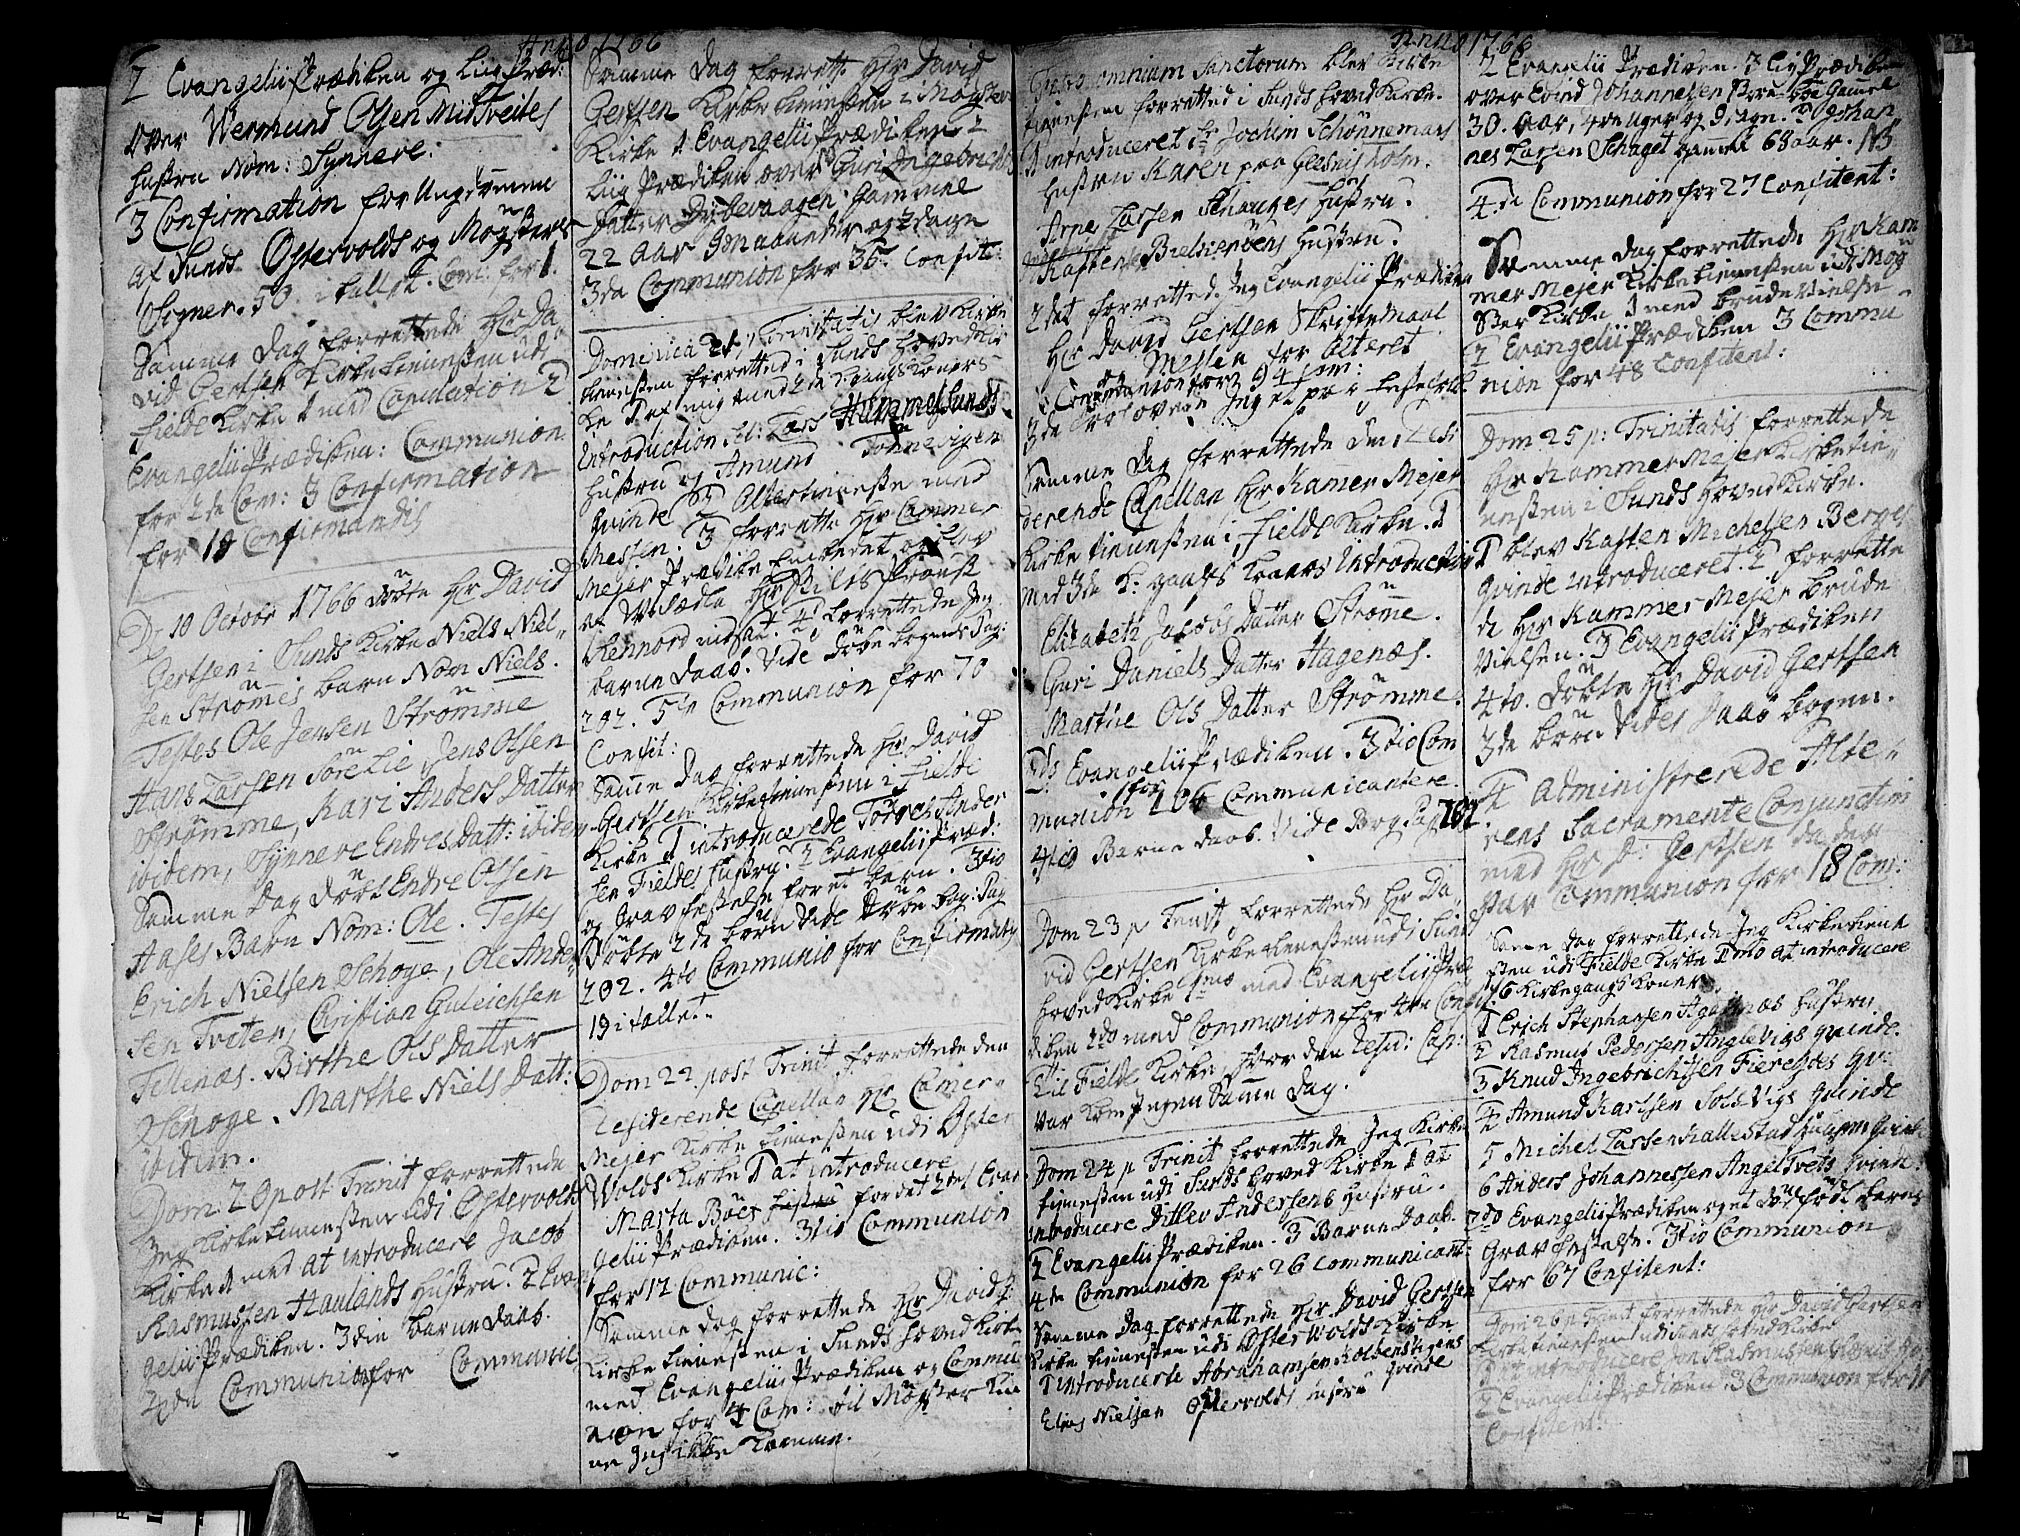 Anno 1766
2 Evangelii Prædiken og Liig Præd:
over Wermund Olsen Midtveites
hustru Nom: Synnere:
3 Confirmation for Ungdommen
af Sunds Ostervolds og Mögsters
Sogner. 50 i tallet. Com: for 1.
Samme Dag forrettede Hr Da-
vid Gertsen Kirketienesten udi
Fielde Kirke 1 med Copulation 2
Evangelii Prædiken: Communion
for 2de Com: 3 Confirmation
for 18 Confirmandis
D. 10 Octobr 1766 döbte Hr David
Gertsen i Sunds Kirke Niels Niel-
sen Strömes barn Nom Niels.
Testes Ole Jensen Strömme
Hans Larsen Sörelie, Jens Olsen
Strömme, Kari Anders Datter
ibidem, Synnere Endres Datt: ibidem
Samme Dag döbt Endre Olsen
Aases Barn Nom: Ole. Testes
Erich Nielsen Schoge, Ole Ander-
sen Tveten, Christian Guleichsen
Tellnæs. Birthe Ols Datter
Schoge. Marthe Niels Datt:
ibidem.
Dom: 20 post Trinit forrettede
Jeg Kirketienesten udi Ostervolds
Kirke 1 med at introducere Jacob
Rasmussen Haulands Hustru. 2 Evan
gelii Prædiken. 3die barne daab.
4de Communion for Communic
Samme Dag forrette Hr David
Gertsen Kirketienesten i Mögster
Kirke 1 Evangelii Prædiken 2
Liig Prædiken over Guri Ingebrichts
Datter Dybevaagen. gammel
22 Aar 9 maaneder og 2 dage
3da Communion for 36 Confit:
Dominica 21 p Trinitatis blev Kirke
tienesten forretted i Sunds Hovedkir
ke 1 af mig med 2de Kgangskoners
Introduction sc: Lars Himmelsunds
Hustru og Amund Tönnevigen
Qvinde 2 Altertieneste med
Messen. 3 forrette Hr Cammer
Mejer Prædike Embedet og blev
af Velædle Hr Bildts Proust
Rennord indsat. 4 forrettede Jeg
barne daab. Vide döbe bogens Pag:
202. 5te Communion for 70
Confit:
Samme Dag forrettede Hr David
Gertsen Kirketienesten i Fielde
Kirke 1 introducerede Törres Ander
sen Fieldes Hustru. 2 Evangelii Præd:
og Gravfestelse for et barn. 3tio
Döbte 2de börn vide Döbe Bog: Pag
202. 4to Communio for Confirmatis
19 i tallet.
Dom 22 post Trinit forrettede den
Residerende Capellan Hr Camer
Mejer Kirketienesten udi Oster
Wolds Kirke 1 at introducere
Marta Böes for det 2det Evan
gelii Prædiken. 3tio Communion
for 12 Communic:
Samme dag forrettede Hr David G:
Kirketienesten i Sunds Hoved Kirke
med Evangelii Prædiken og Commu
nion for 4 Com: til Mögster Kun
ne Jeg ikke komme.
Anno 1766
Festo omnium Sanctorum blev Kirke
tienesten forretted i Sunds hoved Kirke.
1 introduceret Hr Jochim Schönnemans
Hustru Karen paa Glesnis holm.
Arne Larsen Schauges hustru.
Kasten Bielkeröens Hustru.
2det forretted Jeg Evangelii Prædiken
Hr David Gertsen Skriftemaal
Messen for Alteret
Communion for 94
3de
Samme dag forrettede den Resi
derende Capellan Hr Kamer Mejer
Kirketienesten i Fielde Kirke. 1
Med 3de K: gangs koners Introduction
Elizabeth Jacobs Datter Strömme.
Guri Daniels Datter Hagenæs.
Marthe Ols Datter Strömme.
2do Evangelii Prædiken. 3tio Com
munion for 106 Communicantere.
4to Barne daab. Vide Bog Pag 202.
Dom 23 p Trinit forrettede Hr Da
vid Gertsen Kirketienesten udi Sunds
Hoved Kirke 1mo med Evangelii Præ
diken 2do med Communion for 4re Confit:
Til Fielde Kirke, hvor den Resid: Cap:
var kom Ingen Samme Dag.
Dom 24 p Trinit forrettede Jeg Kirke
tienesten udi Sunds hoved Kirke 1 at
introducere Ditlev Andersens Hustru.
2 Evangelii Prædiken. 3 Barne Daab.
4de Communion for 26 Communicant:
Samme Dag forrettede Hr David Gertsen
Kirke tienesten udi Osterwolds Kirke
1 introducerte Abrahamsen Kolbensvigens
Elias Nielsen Ostervolds hustru Qvinde
2 Evangelii Prædiken. 3 Liig Prædiken
over Eivind Johannesen gamel
30. Aar, 4re uger og 9 dage. 2 Johan
nes Larsen Schaget gamel 68 aar. NB
4de Communion for 27 Confitent:
Samme dag forrettede Hr Kam
mer Mejer Kirketienesten udi Mög
ster Kirke 1 med brude vielse
2 Evangelii Prædiken 3 Commu
nion for 48 Confitent:
Dom 25 p: Trinitatis forrettede
Hr Kammer Mejer Kirketie-
nesten i Sunds Hoved Kirke.
1 blev Kasten Michelsen Berges
Qvinde introduceret. 2 forrette
de Hr Kammer Mejer brude
Vielsen. 3 Evangelii Prædiken
4to. Döbte Hr David Gertsen
3de börn Vide Daabs bogen.
5 Administrerede Alte-
rens Sacramente Conjunctim
med Hr D: Gertsen da der
var Communion for 18 Com:
Samme dag forrettede Jeg Kirketiene
sten udi Fielde Kirke 1mo at introducere
6 Kirkegangs Koner.
1 Erich Stephansen Agotnæs hustru
2 Rasmus Pedersen Anglevigs Qvinde.
3 Knud Ingebrichtsen Fierelhes Qv:
4 Amund Karlsen Solsvigs Qvinde
5 Michel Larsen Kallestad
6 Anders Johannessen Angeltvets Qvinde
2do Evangelii Prædiken og et död födt barns
Gravfestelse. 3tio Communion
for 67 Confitent:
Dom 26 p Trinit forrettede Hr David Gertsen
Kirketienesten udi Sunds hoved Kirke
1 at introducere Jon Rasmussen Glesnis
2 Evangelii Prædiken. 3 Communion for 11
Confitent: